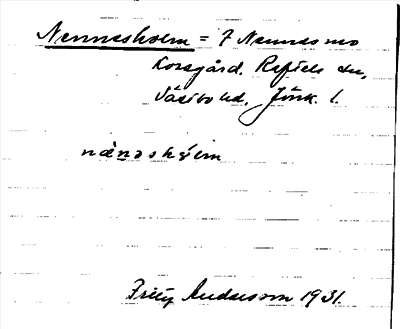 Nennesholm = 7 Nennesmo
Korsgård. Reftele sn,
Västbo hd, Jönk. l.
nænəshɷlm
Fritz Andersson 1931.